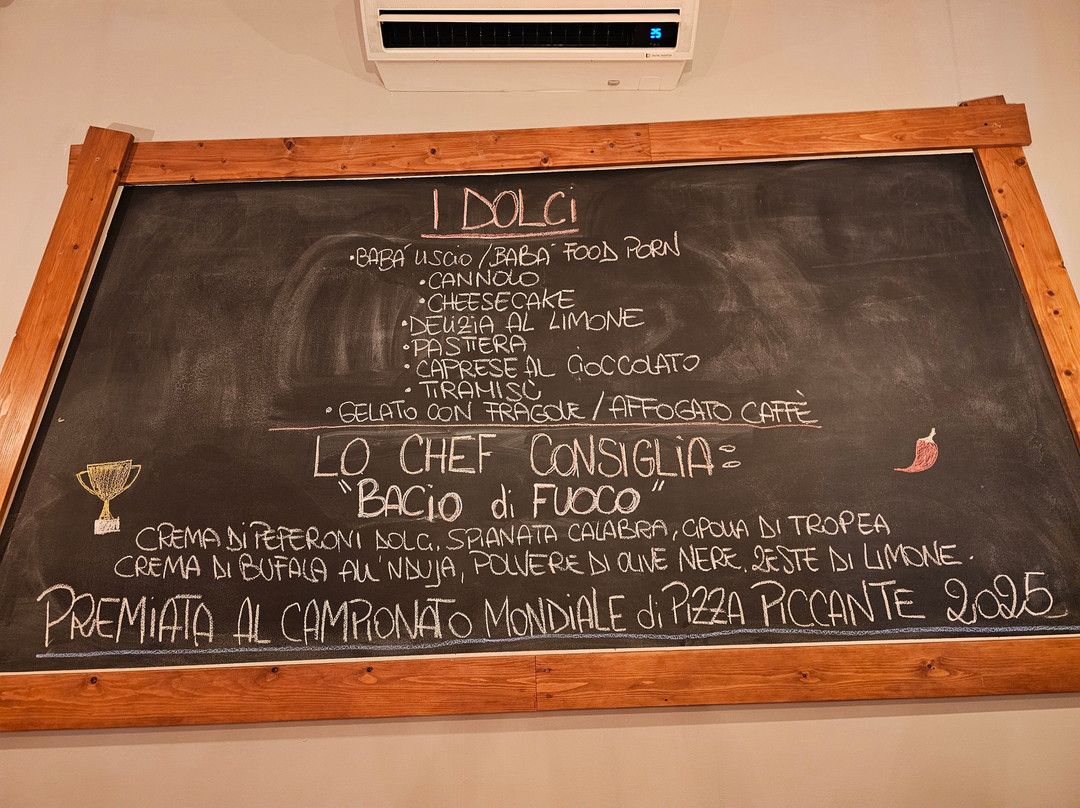 25
I DOLCI
•BABÀ LISCIO / BABÀ FOOD PORN
•CANNOLO
•CHEESECAKE
•DELIZIA AL LIMONE
•PASTIERA
•CAPRESE AL CIOCCOLATO
•TIRAMISÙ
•GELATO CON FRAGOLE / AFFOGATO CAFFÈ
LO CHEF CONSIGLIA:
"BACIO di FUOCO"
CREMA DI PEPERONI DOLCI, SPIANATA CALABRA, CIPOLLA DI TROPEA
CREMA DI BUFALA ALL'NDUJA, POLVERE DI OLIVE NERE, ZESTE DI LIMONE.
PREMIATA AL CAMPIONATO MONDIALE di PIZZA PICCANTE 2025